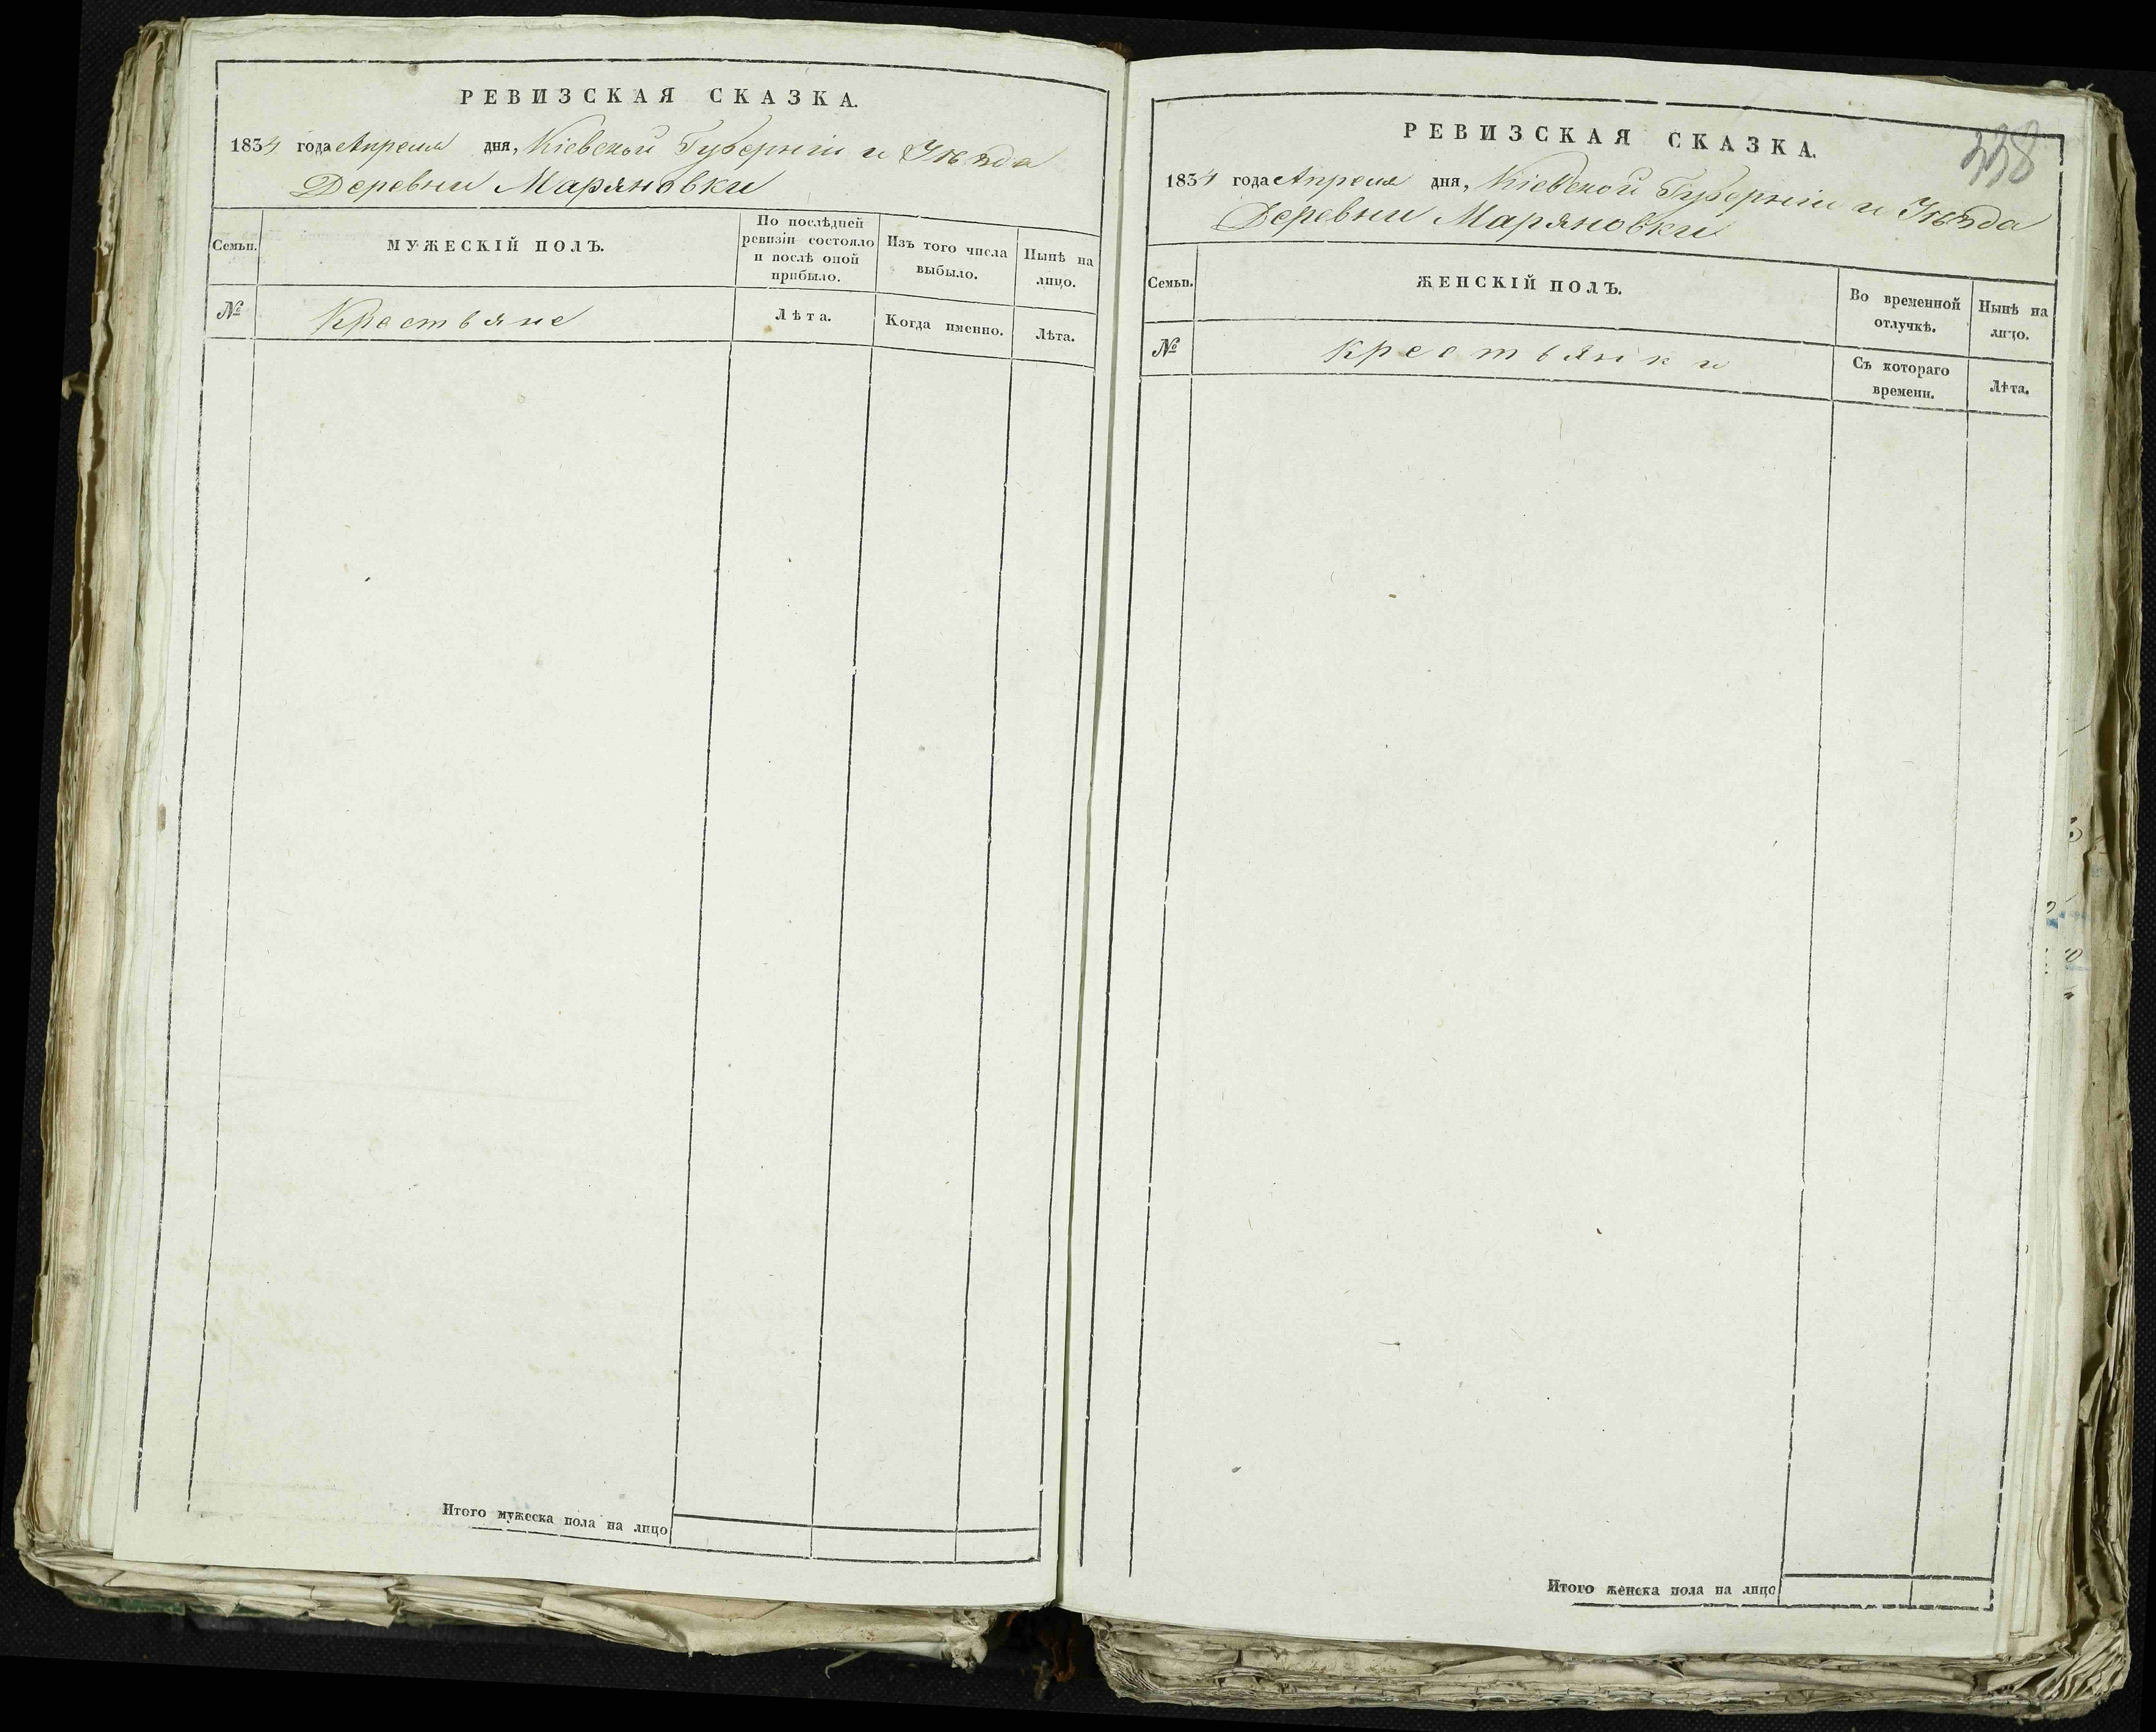 РЕВИЗСКАЯ СКАЗКА.
1834 года Апреля дня, Кіевской Губерніи и Уѣзда
Деревни Маряновки
Семьи.
МУЖЕСКІЙ ПОЛЪ.
По послѣдней
ревизіи состояло
и послѣ оной
прибыло.
Изъ того числа
выбыло.
Нынѣ на
лицо.
№
Крестьяне
Лѣта.
Когда именно.
Лѣта.
Итого мужеска пола на лицо
338
РЕВИЗСКАЯ СКАЗКА.
1834 года Апреля дня, Кіевской Губерніи и Уѣзда
Деревни Маряновки
Семьи.
ЖЕНСКІЙ ПОЛЪ.
Во временной
отлучкѣ.
Нынѣ на
лицо.
№
Крестьянки
Съ котораго
времени.
Лѣта.
Итого женска пола на лицо